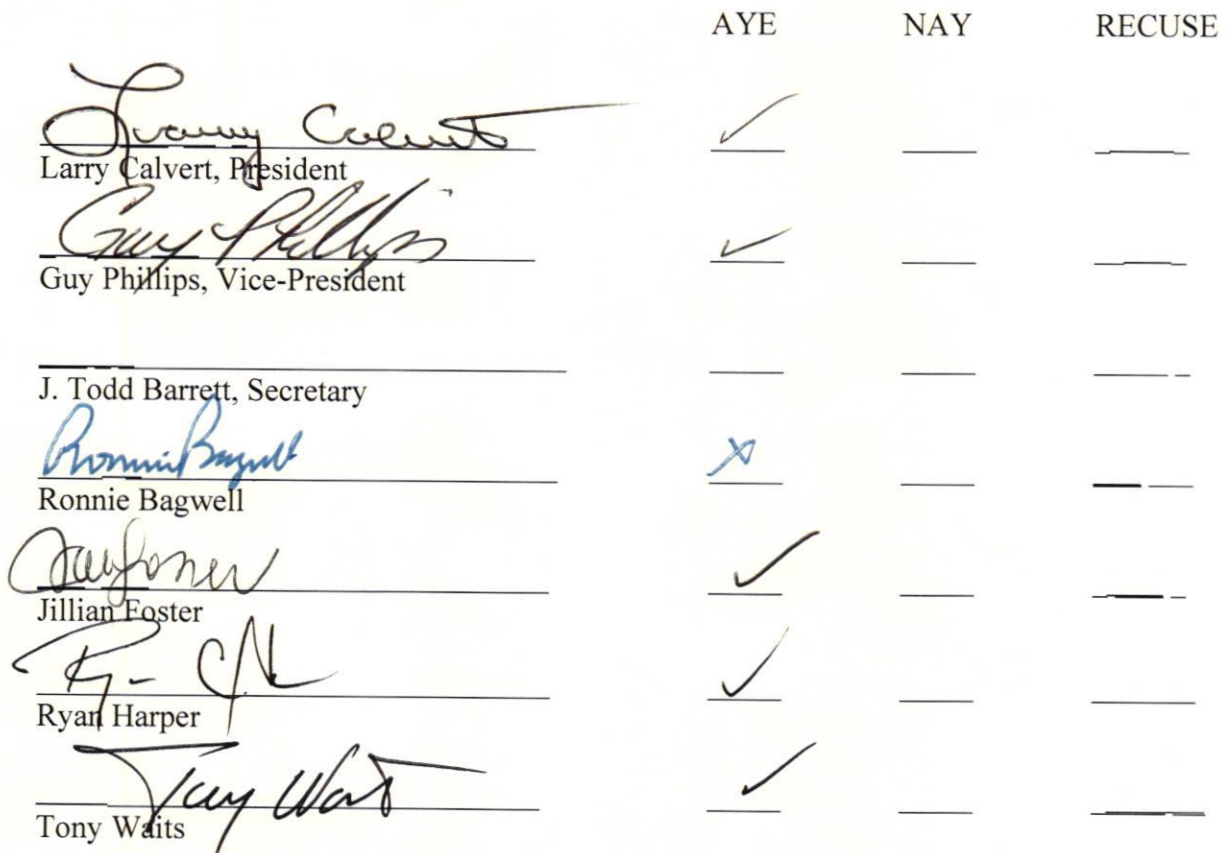 AYE NAY RECUSE
Larry Calvert
Larry Calvert, President
Guy Phillips
Guy Phillips, Vice-President
J. Todd Barrett, Secretary
Ronnie Bagwell
Ronnie Bagwell
Jillian Foster
Ryan Harper
Tony Waits
Tony Waits